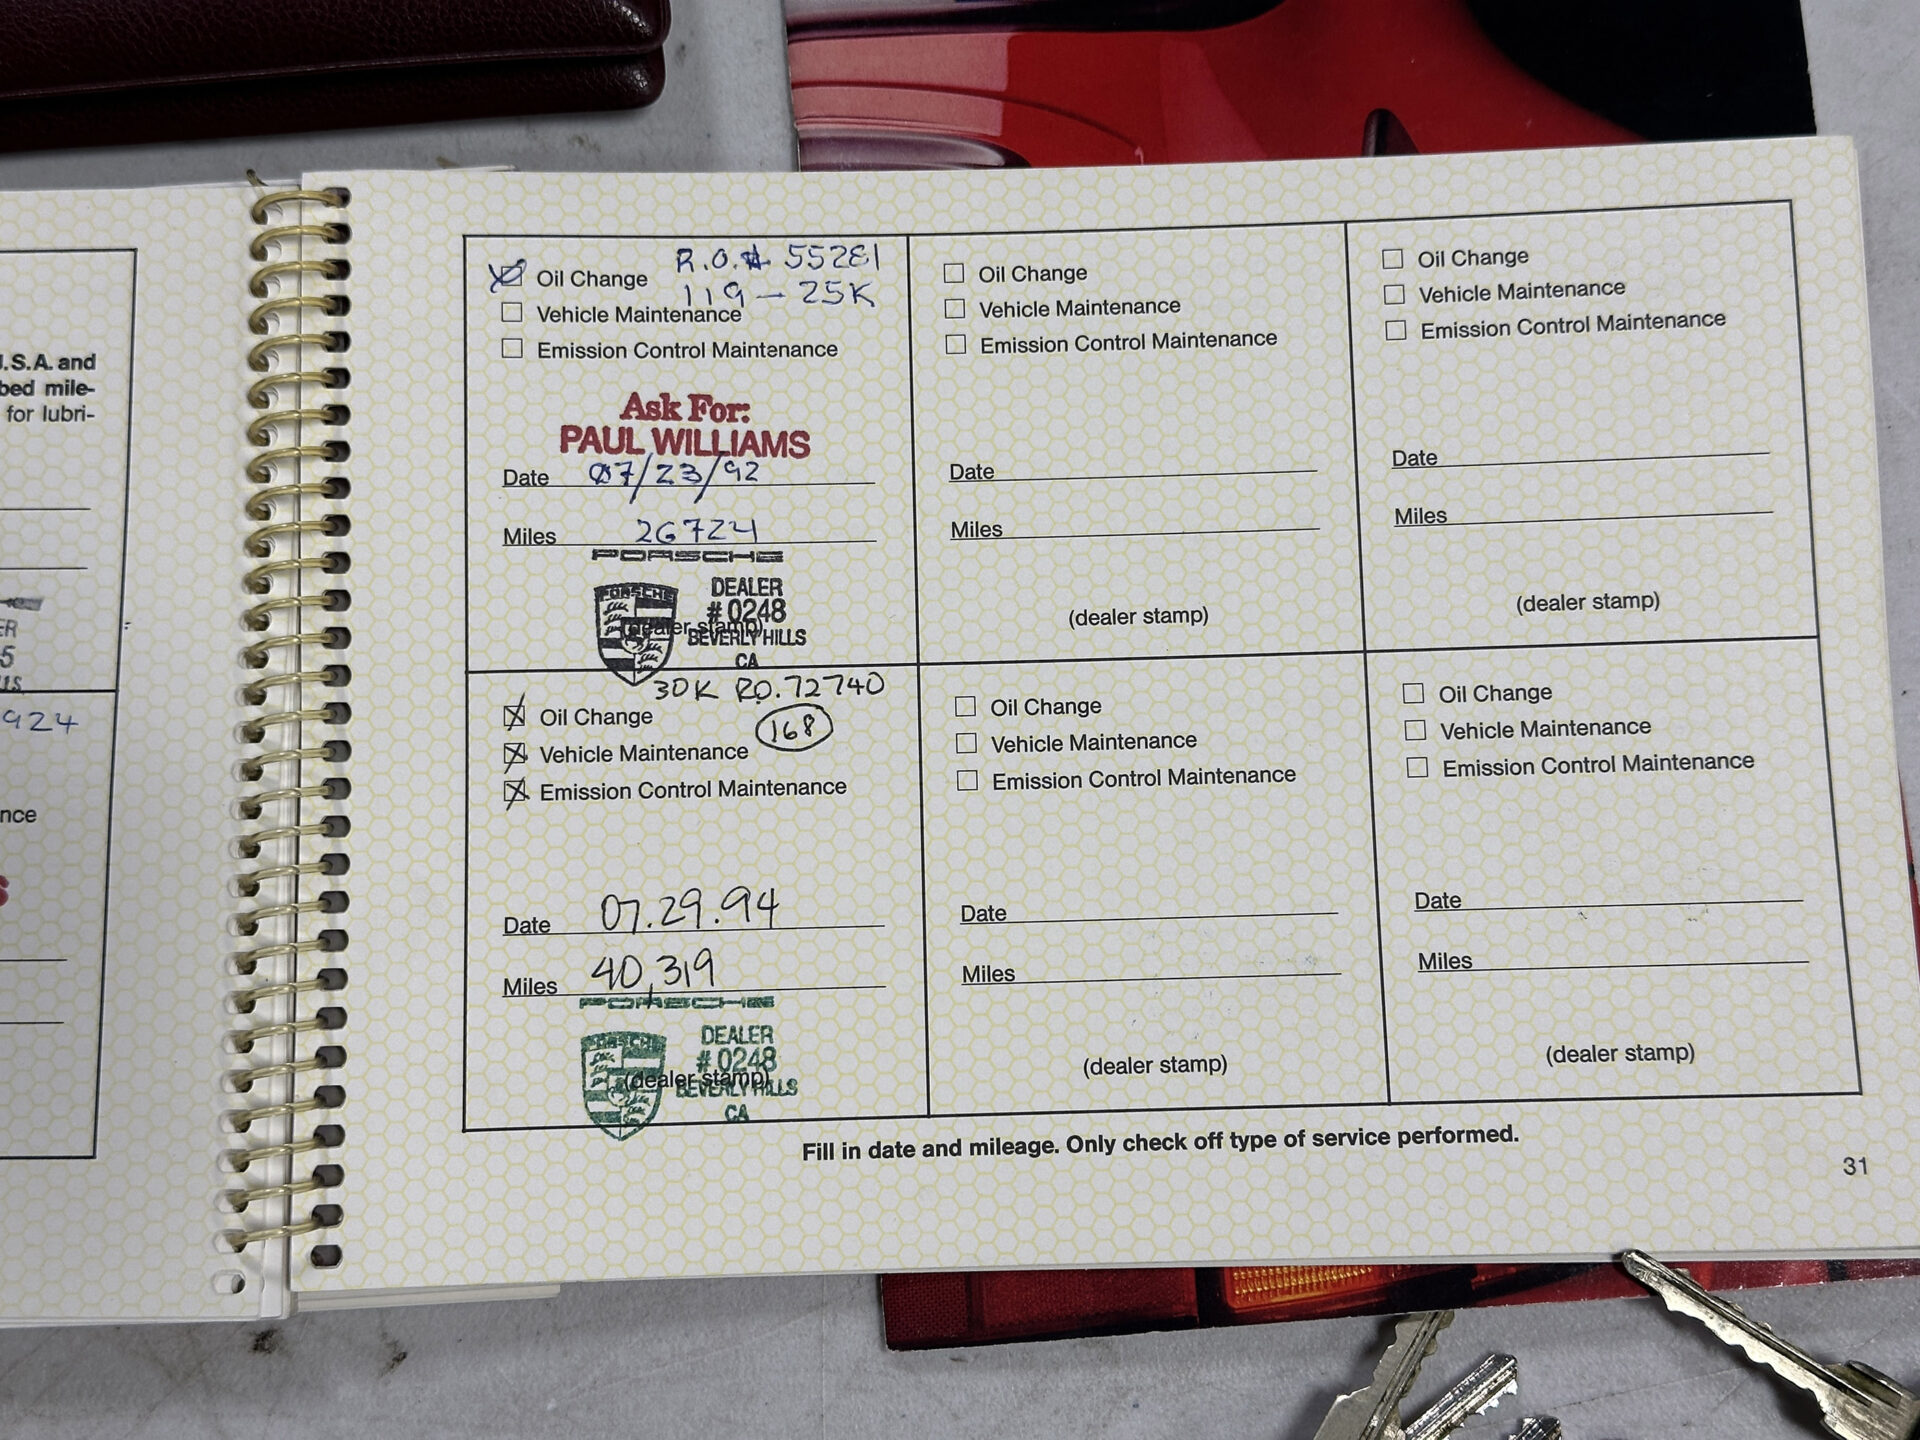 J.S.A. and
bed mile-
for lubri-
ER
5
924
nce
S
Oil Change R.O.# 55281
119 — 25K
Vehicle Maintenance
Emission Control Maintenance
Ask For:
PAUL WILLIAMS
Date 07/23/92
Miles 26724
PORSCHE
PORSCHE
DEALER
# 0248
(dealer stamp)
BEVERLY HILLS
CA
Oil Change
Vehicle Maintenance
Emission Control Maintenance
Date
Miles
(dealer stamp)
Oil Change
Vehicle Maintenance
Emission Control Maintenance
Date
Miles
(dealer stamp)
30K RO.72740
Oil Change
168
Vehicle Maintenance
Emission Control Maintenance
Date 07.29.94
Miles 40,319
PORSCHE
PORSCHE
DEALER
# 0248
(dealer stamp)
BEVERLY HILLS
CA
Oil Change
Vehicle Maintenance
Emission Control Maintenance
Date
Miles
(dealer stamp)
Oil Change
Vehicle Maintenance
Emission Control Maintenance
Date
Miles
(dealer stamp)
Fill in date and mileage. Only check off type of service performed.
31